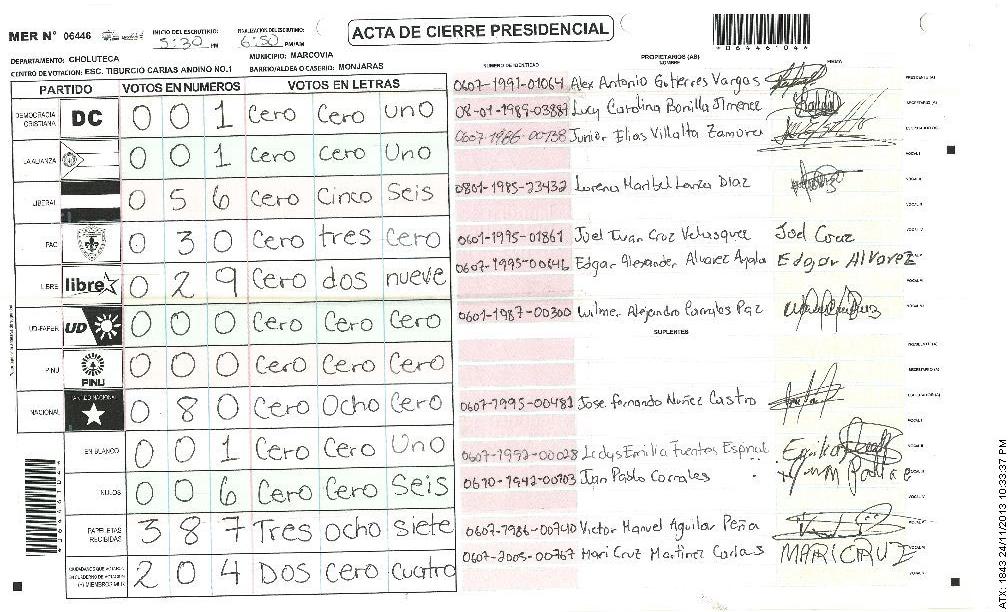 MER N° 06446
INICIO DEL ESCRUTINIO: 5:30 PM
FINALIZACION DEL ESCRUTINIO: 6:50 PM/AM
ACTA DE CIERRE PRESIDENCIAL
*06446104*
DEPARTAMENTO: CHOLUTECA
MUNICIPIO: MARCOVIA
CENTRO DE VOTACION: ESC. TIBURCIO CARIAS ANDINO NO.1
BARRIO/ALDEA O CASERIO: MONJARAS
NUMERO DE IDENTIDAD
PROPIETARIOS (AS)
NOMBRE
FIRMA
PARTIDO VOTOS EN NUMEROS VOTOS EN LETRAS
DEMOCRACIA CRISTIANA DC 0 0 1 Cero Cero Uno
LA ALIANZA 0 0 1 Cero Cero Uno
LIBERAL 0 5 6 Cero Cinco Seis
PAC 0 3 0 Cero tres Cero
LIBRE libre 0 2 9 Cero dos nueve
UD-FAPER UD 0 0 0 Cero Cero Cero
PINU PINU 0 0 0 Cero Cero Cero
NACIONAL 0 8 0 Cero Ocho Cero
EN BLANCO 0 0 1 Cero Cero Uno
NULOS 0 0 6 Cero Cero Seis
PAPELETAS RECIBIDAS 3 8 7 Tres ocho siete
2 0 4 Dos Cero Cuatro
0607-1991-01064 Alex Antonio Gutierres Vargas PRESIDENTE (A)
08-01-1989-03887 Lucy Carolina Bonilla Jimenez SECRETARIO (A)
0607-1986-00738 Junior Elias Villalta Zamora
0801-1985-23432 Lorena Maribel Lanza Diaz
0601-1995-01861 Joel Ivan Cruz Velasquez Joel Cruz
0607-1995-00646 Edgar Alexander Alvarez Ayala Edgar Alvarez
0601-1987-00300 Wilmer Alejandro Corrales Paz
SUPLENTES
0607-1995-00481 Jose fernando Nuñez Castro
0607-1992-00028 Ledys Emilia Fuentes Espinal
0610-1942-00703 Juan Pablo Corrales
0607-1986-00740 Victor Manuel Aguilar Peña
0607-2005-00767 Mari Cruz Martinez Carias MARICRUZ
ATX: 1843 24/11/2013 10:33:37 PM